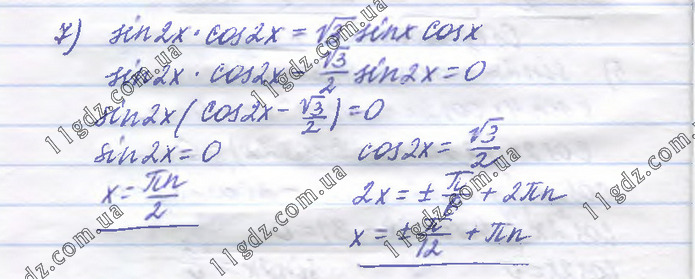 7) sin2x · cos2x = √3 sinx cosx
sin2x · cos2x - √3/2 sin2x = 0
sin2x (cos2x - √3/2) = 0
sin2x = 0 cos2x = √3/2
x = πn/2 2x = ± π/6 + 2πn
x = ± π/12 + πn
11gdz.com.ua
11gdz.com.ua
11gdz.com.ua
11gdz.com.ua
11gdz.com.ua
11gdz.com.ua